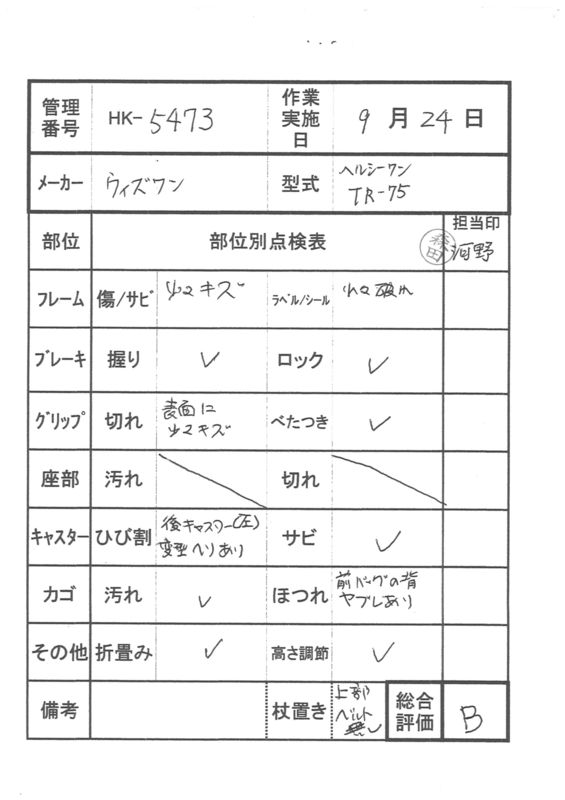 管理番号 HK-5473 作業実施日 9月24日
メーカー ウィズワン 型式 ヘルシーワン TR-75
部位 部位別点検表 担当印 森田 河野
フレーム 傷/サビ 少々キズ ラベル/シール 少々破れ
ブレーキ 握り ✓ ロック ✓
グリップ 切れ 表面に少々キズ べたつき ✓
座部 汚れ 切れ
キャスター ひび割 後キャスター(左)変型ヘリあり サビ ✓
カゴ 汚れ ✓ ほつれ 前バッグの背ヤブレあり
その他 折畳み ✓ 高さ調節 ✓
備考 杖置き 上部ベルト ✓ 総合評価 B